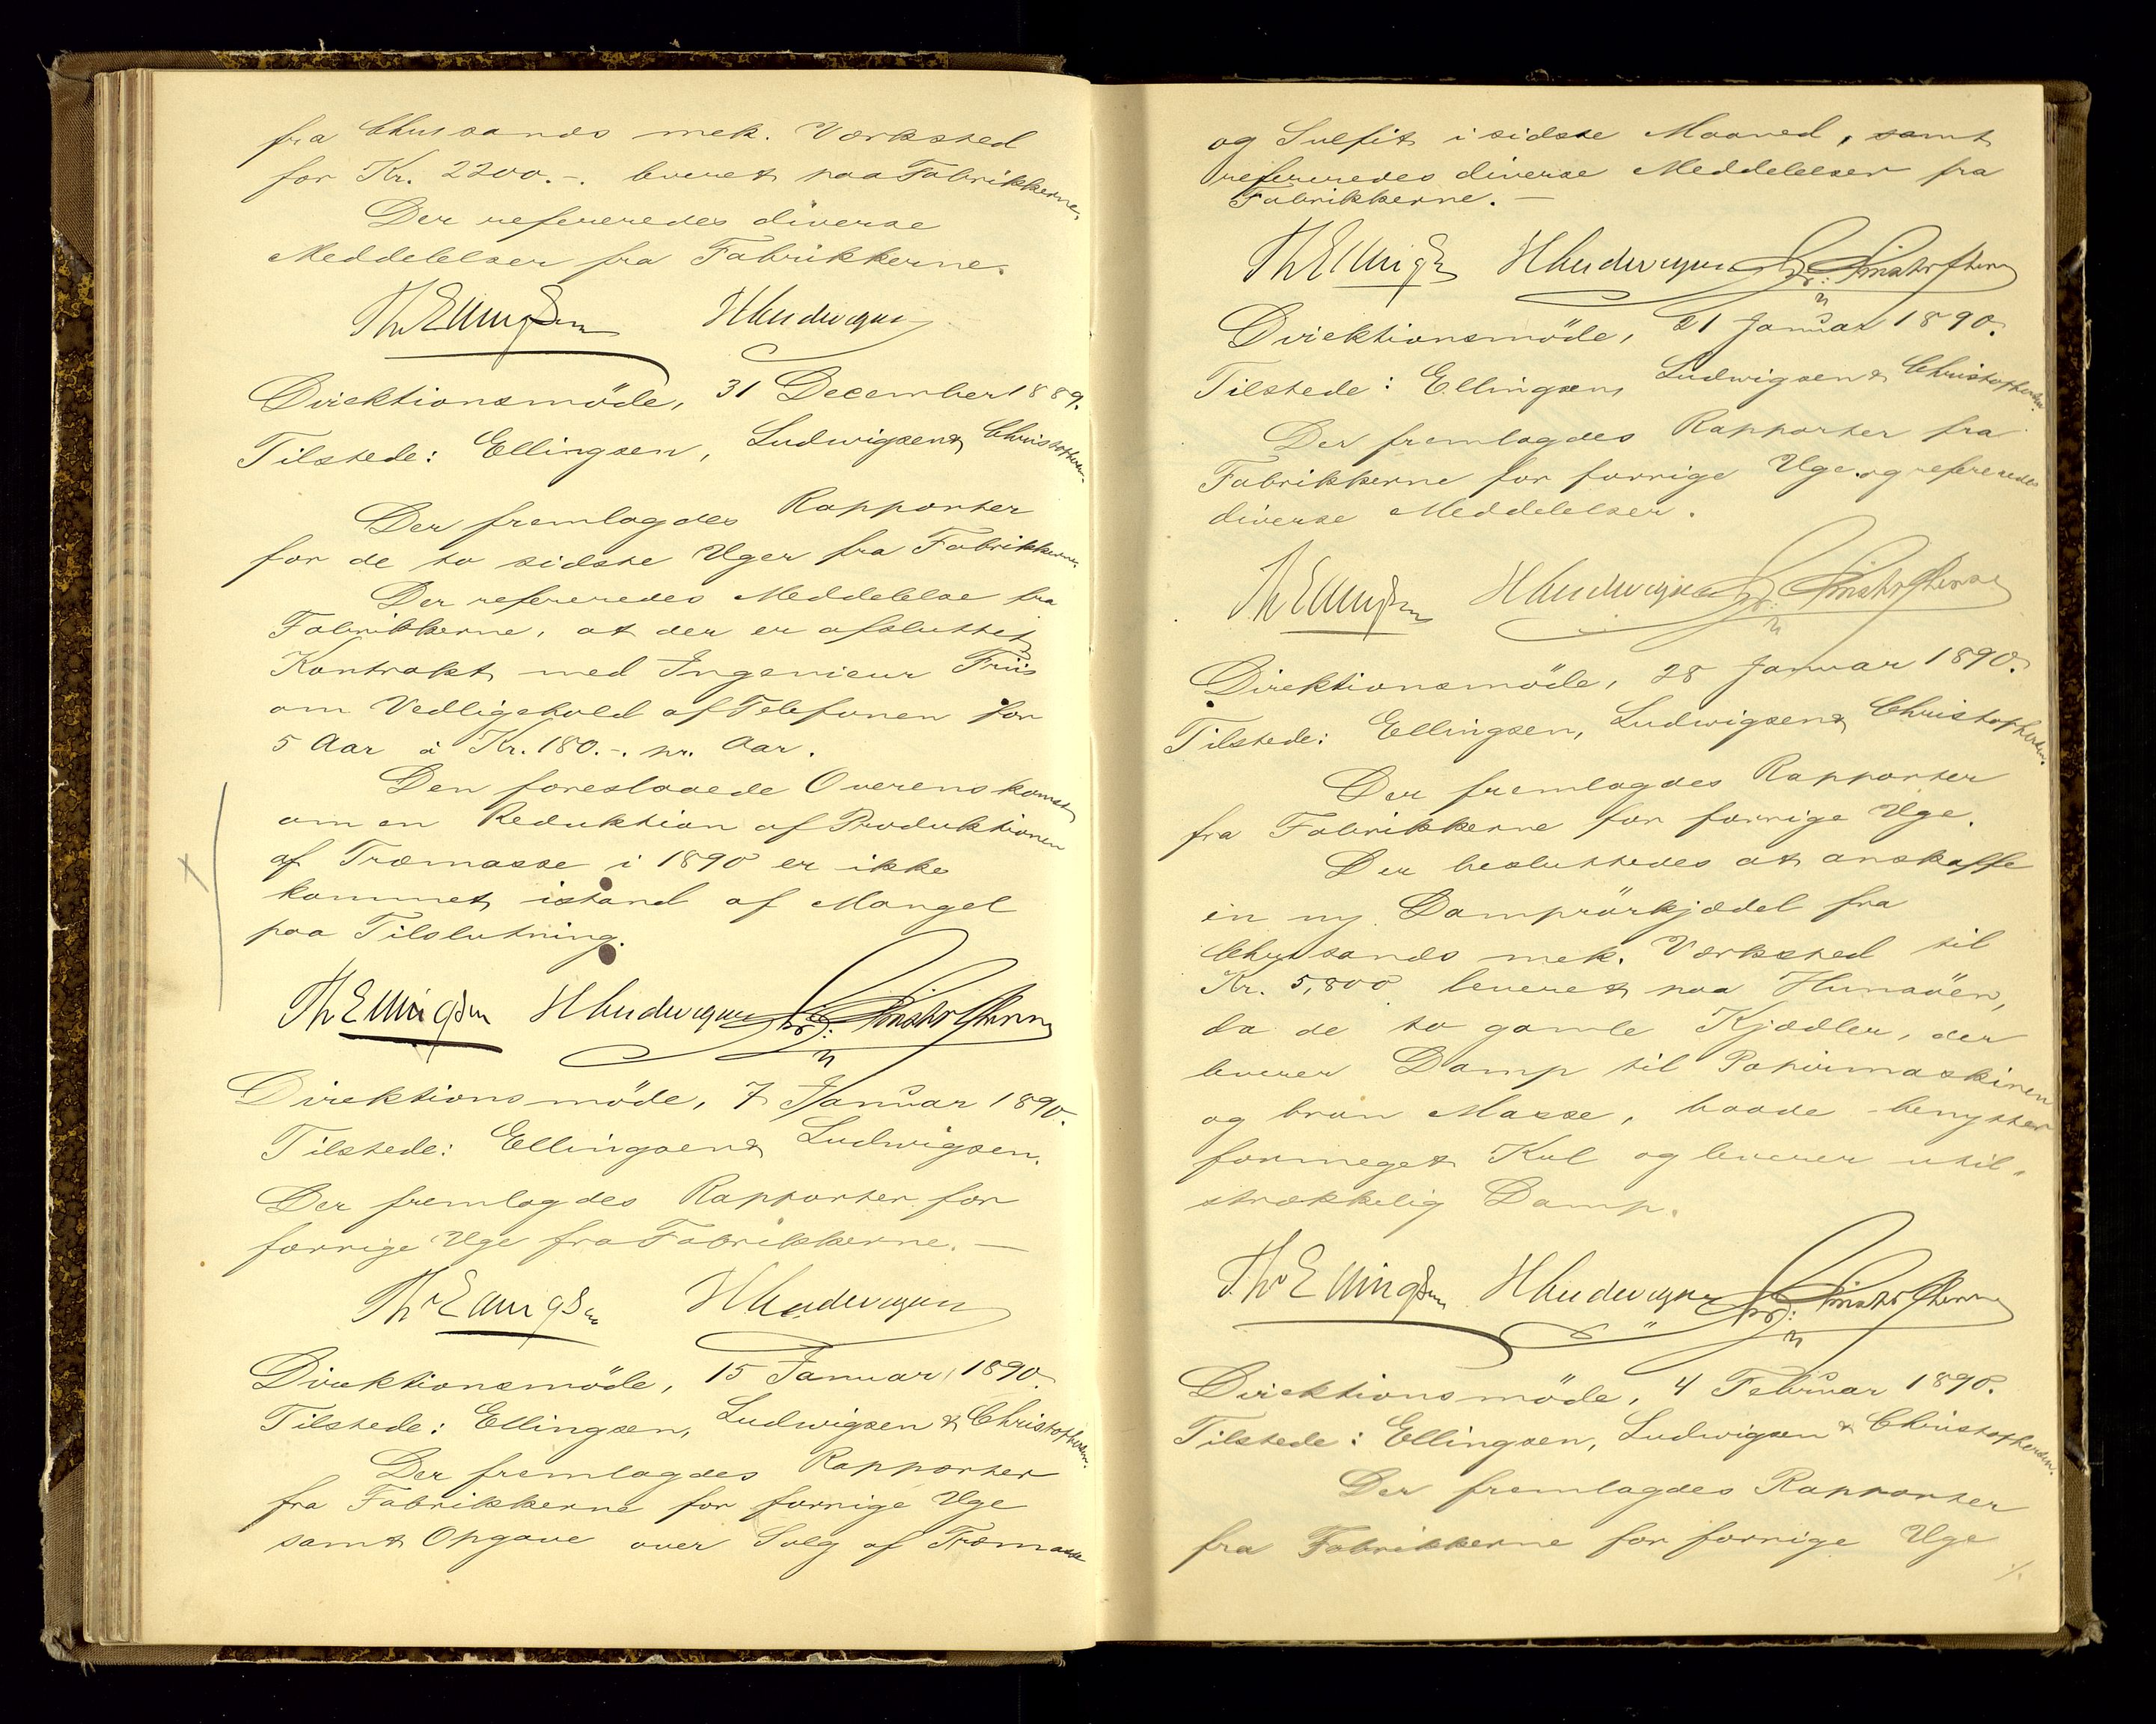 fra Chrissands mek. Værksted
for Kr. 2200.-. leveret paa Fabrikkerne.
Der refereredes diverse
Meddelelser fra Fabrikkerne.
Th Ellingsen H Ludwigsen
Direktionsmöde, 31 December 1889.
Tilstede: Ellingsen, Ludwigsen & Christophersen.
Der fremlagdes Rapporter
for de to sidste Uger fra Fabrikkerne.
Der refereredes Meddelelse fra
Fabrikkerne, at der er afsluttet
Kontrakt med Ingenieur Friis
om Vedligehold af Telefonen for
5 Aar à Kr. 180.-. pr. Aar.
Den foreslaaede Overenskomst
om en Reduktion af Produktionen
af Træmasse i 1890 er ikke
kommet istand af Mangel
paa Tilslutning.
Th Ellingsen H Ludwigsen Christophersen
Direktionsmöde, 7 Januar 1890.
Tilstede: Ellingsen & Ludwigsen.
Der fremlagdes Rapporter for
forrige Uge fra Fabrikkerne. —
Th Ellingsen H Ludwigsen
Direktionsmöde, 15 Januar 1890.
Tilstede: Ellingsen, Ludwigsen & Christophersen.
Der fremlagdes Rapporter
fra Fabrikkerne for forrige Uge
samt Opgave over Salg af Træmasse
og Sulfit i sidste Maaned, samt
refereredes diverse Meddelelser fra
Fabrikkerne. —
Th Ellingsen H Ludwigsen Christophersen
Direktionsmöde, 21 Januar 1890.
Tilstede: Ellingsen, Ludwigsen & Christophersen.
Der fremlagdes Rapporter fra
Fabrikkerne for forrige Uge og refereredes
diverse Meddelelser.
Th Ellingsen H Ludwigsen Christophersen
Direktionsmöde, 28 Januar 1890.
Tilstede: Ellingsen, Ludwigsen & Christophersen.
Der fremlagdes Rapporter
fra Fabrikkerne for forrige Uge.
Der besluttedes at anskaffe
en ny Damprörkjædel fra
Chrissands mek. Værksted til
Kr. 5,800 leveret paa Hunsöen,
da de to gamle Kjædler, der
leverer Damp til Papirmaskinen
og brun Masse, baade benytter
formeget Kul og leverer util-
strækkelig Damp.
Th Ellingsen H Ludwigsen Christophersen
Direktionsmöde, 4 Februar 1890.
Tilstede: Ellingsen, Ludwigsen & Christophersen.
Der fremlagdes Rapporter
fra Fabrikkerne for forrige Uge
./.